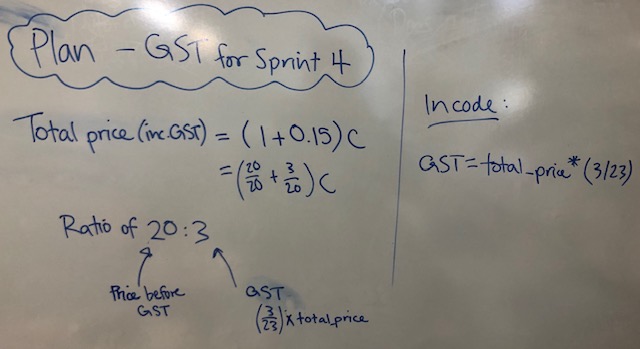 Plan - GST for Sprint 4
Total price (inc.GST) = (1+0.15)C
= (20/20 + 3/20)C
Ratio of 20:3
Price before
GST
GST
(3/23) x total price
In code:
GST = total_price * (3/23)